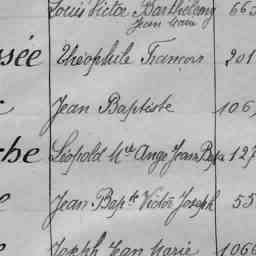 Louis Victor Barthelemy 663
Jean Marie
sée Théophile François 201
Jean Baptiste 106
che Léopold Mie Ange Jean Bapt 127
Jean Bapte Victor Joseph 55
e Joseph Jean Marie 1066